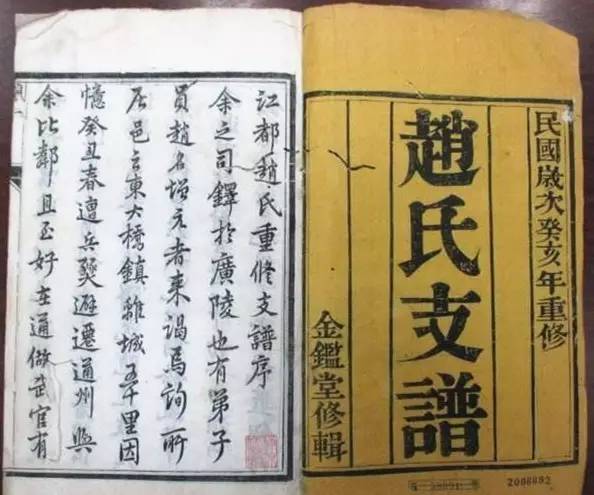 民國歲次癸亥年重修
趙氏支譜
金鑑堂修輯
2006092
江都趙氏重修支譜序
余之司鐸於廣陵也有弟子
員趙名增元者來謁焉詢所
居邑之東大橋鎮離城五十里因
憶癸丑春遭兵燹避遷通州與
余比鄰且至好在通做武官有